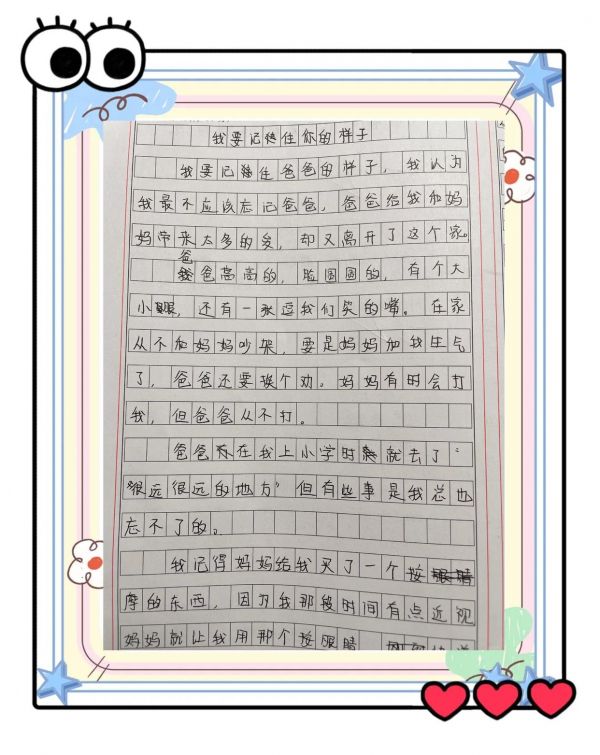 我要记住你的样子
我要记住爸爸的样子，我认为
我最不应该忘记爸爸，爸爸给我和妈
妈带来太多的爱，却又离开了这个家。
爸爸高高的，脸圆圆的，有个大
小眼，还有一张逗我们笑的嘴。在家
从不和妈妈吵架，要是妈妈和我生气
了，爸爸还要挨个劝。妈妈有时会打
我，但爸爸从不打。
爸爸在我上小字时就去了
“很远很远的地方”但有些事是我总也
忘不了的。
我记得妈妈给我买了一个按
摩的东西，因为我那段时间有点近视
妈妈就让我用那个按眼睛